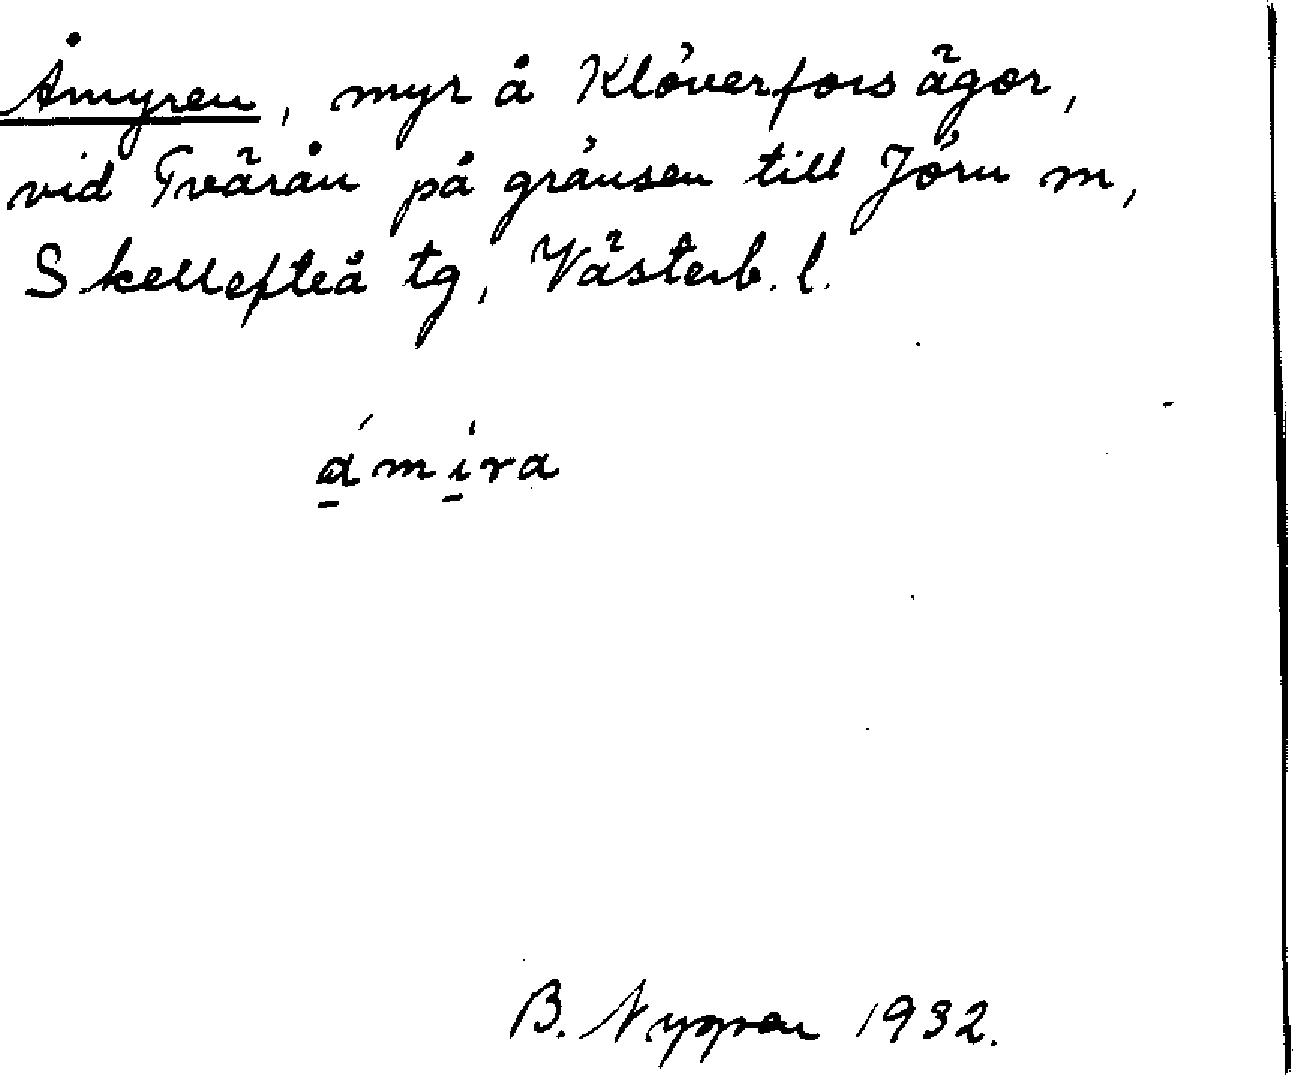 Åmyren, myr å Klöverfors ägor,
vid Tvärån på gränsen till Jörn m,
Skellefteå tg, Västerb. l.
ámíra
B. Nygren 1932.